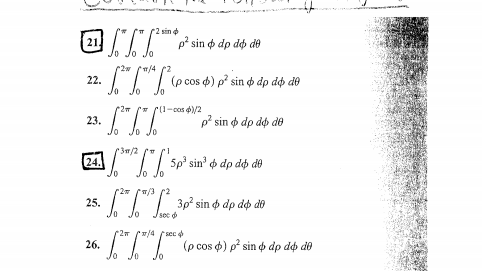 21. ∫₀^π ∫₀^π ∫₀^(2 sin ϕ) ρ² sin ϕ dρ dϕ dθ
22. ∫₀^(2π) ∫₀^(π/4) ∫₀^2 (ρ cos ϕ) ρ² sin ϕ dρ dϕ dθ
23. ∫₀^(2π) ∫₀^π ∫₀^((1−cos ϕ)/2) ρ² sin ϕ dρ dϕ dθ
24. ∫₀^(3π/2) ∫₀^π ∫₀^1 5ρ³ sin³ ϕ dρ dϕ dθ
25. ∫₀^(2π) ∫₀^(π/3) ∫_(sec ϕ)^2 3ρ² sin ϕ dρ dϕ dθ
26. ∫₀^(2π) ∫₀^(π/4) ∫₀^(sec ϕ) (ρ cos ϕ) ρ² sin ϕ dρ dϕ dθ